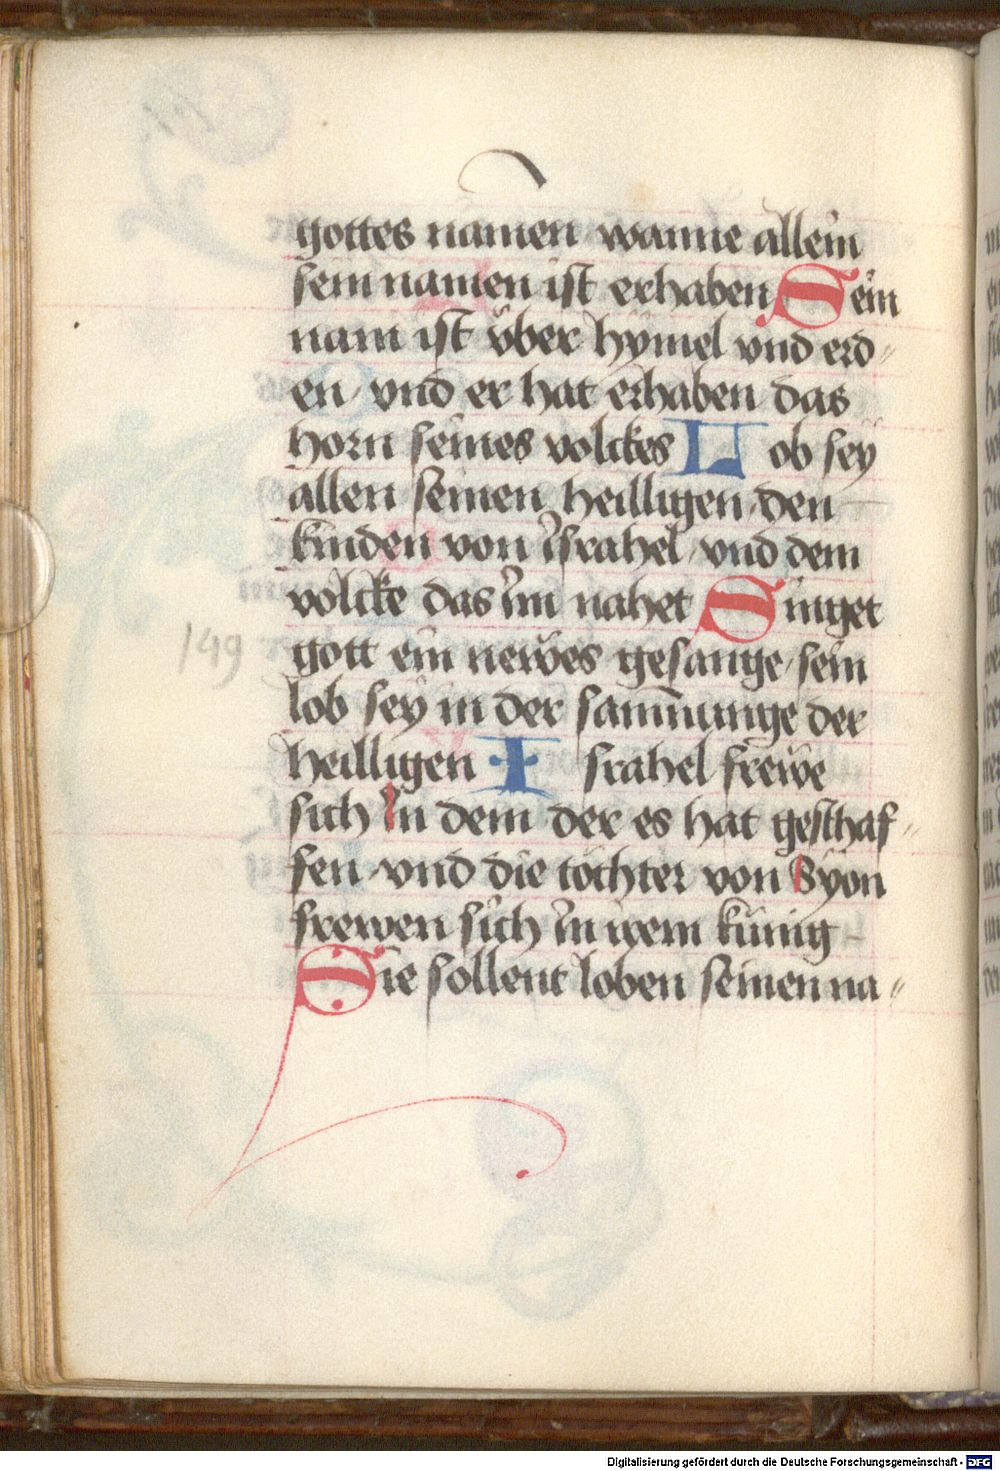 gottes namen wanne allein
sein namen ist erhaben Sein
nam ist vͤber hymel vnd erd〃
en / vnd er hat erhaben das
horn seines volckes Lob sey
allen seinen heilligen / den
kinden von israhel / vnd dem
volcke das im nahet Singet
gott ein newes gesange / sein
lob sey in der sammunge der
heilligen Israhel frewe
sich in dem der es hat geschaf〃
fen / vnd die töchter von Syon
frewen sich in irem künig
Sie sollent loben seinen na〃
149
Digitalisierung gefördert durch die Deutsche Forschungsgemeinschaft - DFG